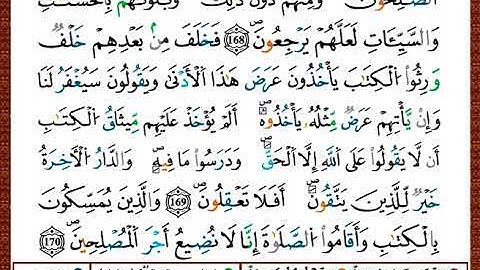 الصَّـٰلِحُونَ وَمِنْهُمْ دُونَ ذَٰلِكَ ۖ وَبَلَوْنَـٰهُم بِالْحَسَنَـٰتِ
وَالسَّيِّـَٔاتِ لَعَلَّهُمْ يَرْجِعُونَ ﴿168﴾ فَخَلَفَ مِنۢ بَعْدِهِمْ خَلْفٌ
وَرِثُوا۟ الْكِتَـٰبَ يَأْخُذُونَ عَرَضَ هَـٰذَا الْأَدْنَىٰ وَيَقُولُونَ سَيُغْفَرُ لَنَا
وَإِن يَأْتِهِمْ عَرَضٌ مِّثْلُهُۥ يَأْخُذُوهُ ۚ أَلَمْ يُؤْخَذْ عَلَيْهِم مِّيثَـٰقُ الْكِتَـٰبِ
أَن لَّا يَقُولُوا۟ عَلَى اللَّهِ إِلَّا الْحَقَّ وَدَرَسُوا۟ مَا فِيهِ ۗ وَالدَّارُ الْـَٔاخِرَةُ
خَيْرٌ لِّلَّذِينَ يَتَّقُونَ ۗ أَفَلَا تَعْقِلُونَ ﴿169﴾ وَالَّذِينَ يُمَسِّكُونَ
بِالْكِتَـٰبِ وَأَقَامُوا۟ الصَّلَوٰةَ إِنَّا لَا نُضِيعُ أَجْرَ الْمُصْلِحِينَ ﴿170﴾